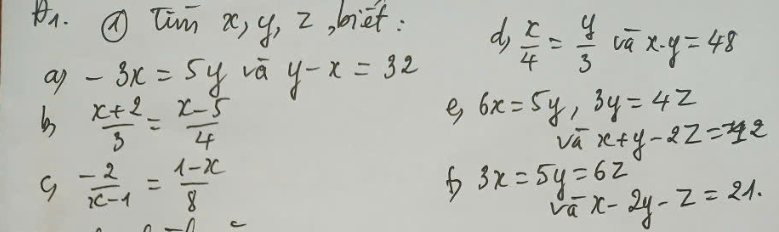 A1. ① Tìm x, y, z, biết:
a) -3x = 5y và y - x = 32
b) x+2/3 = x-5/4
c) -2/x-1 = 1-x/8
d) x/4 = y/3 và x·y = 48
e) 6x = 5y, 3y = 4z
và x+y-2z =
f) 3x = 5y = 6z
và x - 2y - z = 21.